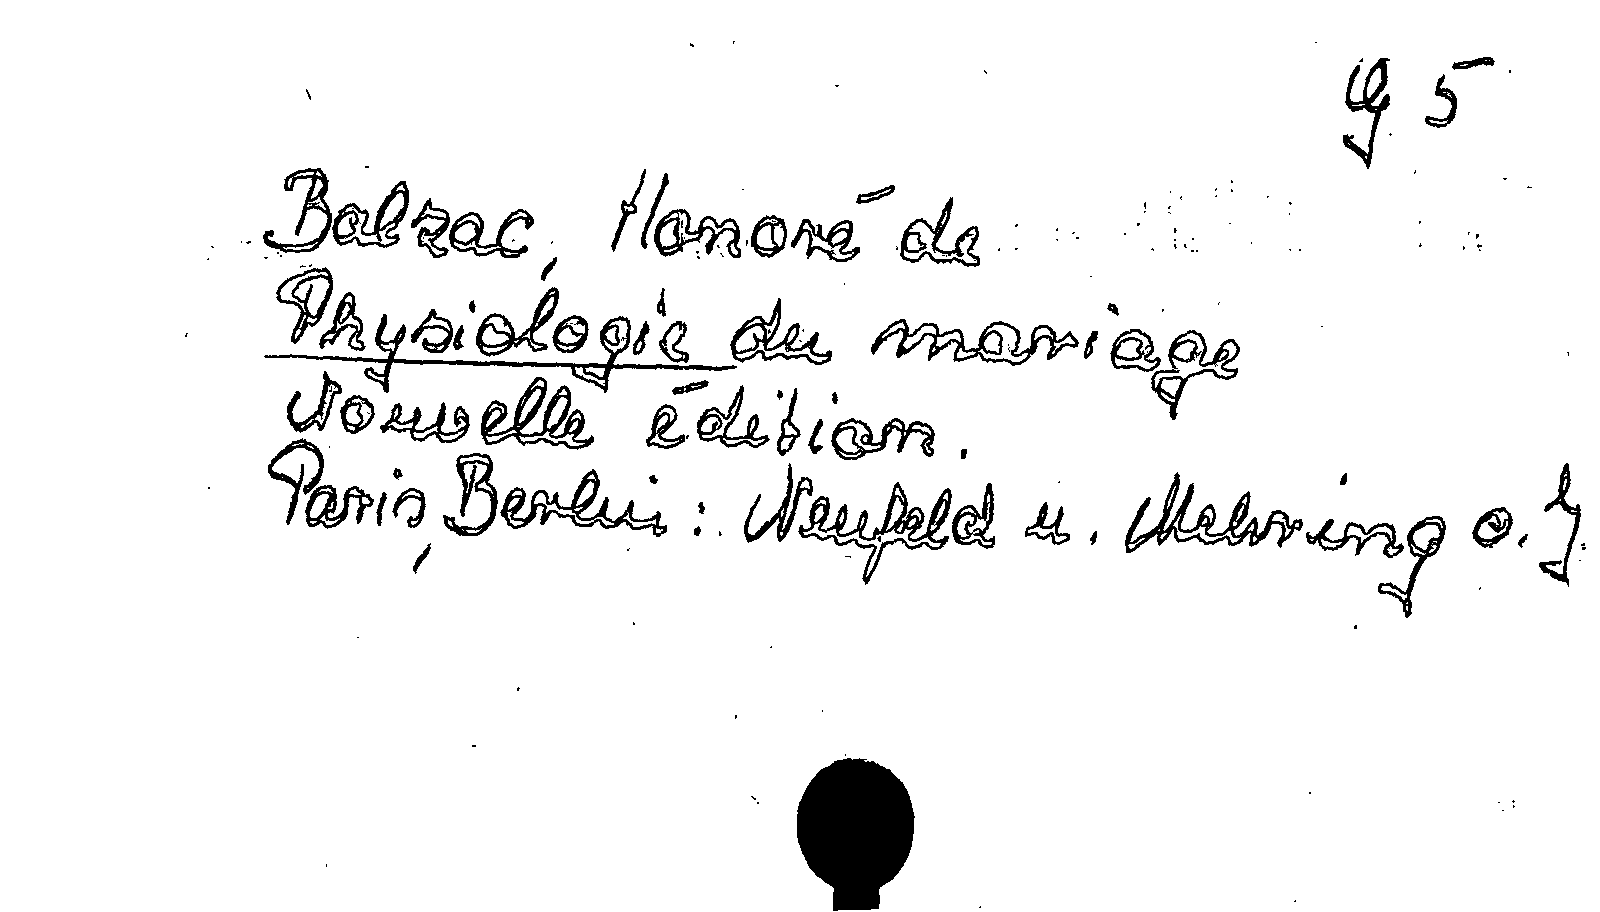 g 5
Balzac, Honoré de
Physiologie du mariage
Nouvelle édition.
Paris, Berlin: Neufeld u. Mehring o. J.